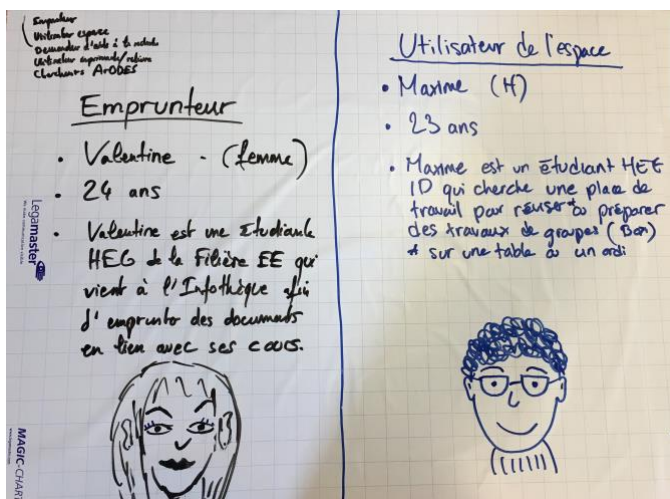 Emprunteur
Utilisateur espace
Demandeur d'aide à la recherche
Utilisateur imprimante/reliure
Chercheurs ArODES
Emprunteur
• Valentine - (femme)
• 24 ans
• Valentine est une Etudiante
HEG de la Filière EE qui
vient à l'Infothèque afin
d'emprunter des documents
en lien avec ses cours.
Legamaster
MAGIC-CHART
Utilisateur de l'espace
• Maxime (H)
• 23 ans
• Maxime est un étudiant HEG
ID qui cherche une place de
travail pour réviser* ou préparer
des travaux de groupes (Box)
* sur une table ou un ordi